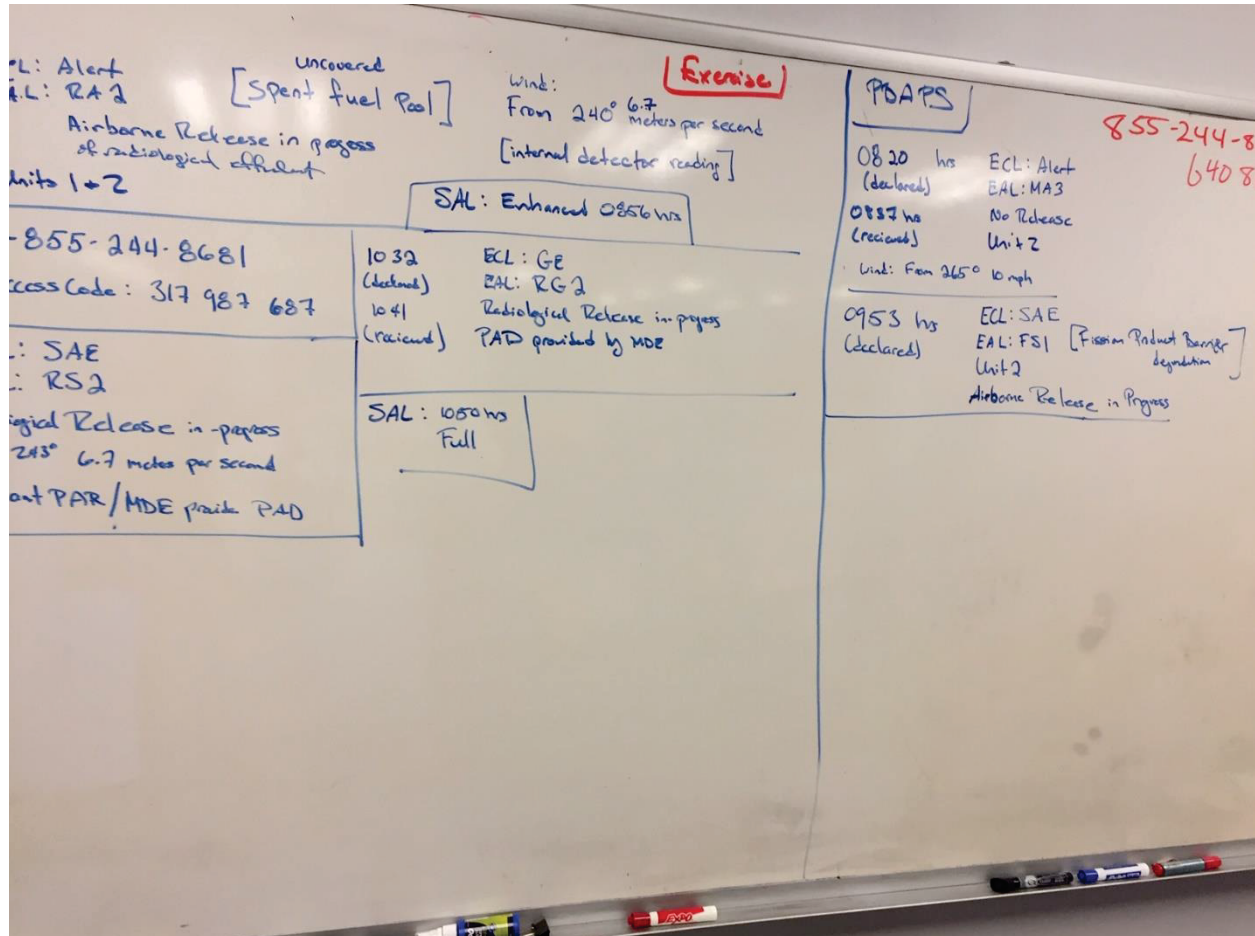 [Exercise]
CL: Alert
A.L: RA2
uncovered
[Spent fuel Pool]
Airborne Release in progess
of radiological effluent
Units 1+2
Wind:
From 240° 6.7 meters per second
[internal detector reading]
SAL: Enhanced 0856 hrs
-855-244-8681
ccess Code: 317 987 687
: SAE
: RS2
ogical Release in-progess
243° 6.7 meters per second
ant PAR/MDE provide PAD
1032 ECL: GE
(declared) EAL: RG2
1041 Radiological Release in-progess
(recieved) PAD provided by MDE
SAL: 1050 hrs
Full
PBAPS
855-244-8
6408
0820 hrs ECL: Alert
(declared) EAL: MA3
0837 hrs No Release
(recieved) Unit 2
Wind: From 265° 10 mph
0953 hrs ECL: SAE
(declared) EAL: FS1 [Fission Product Barrier
degradation]
Unit 2
Airborne Release in Progress
EXPO